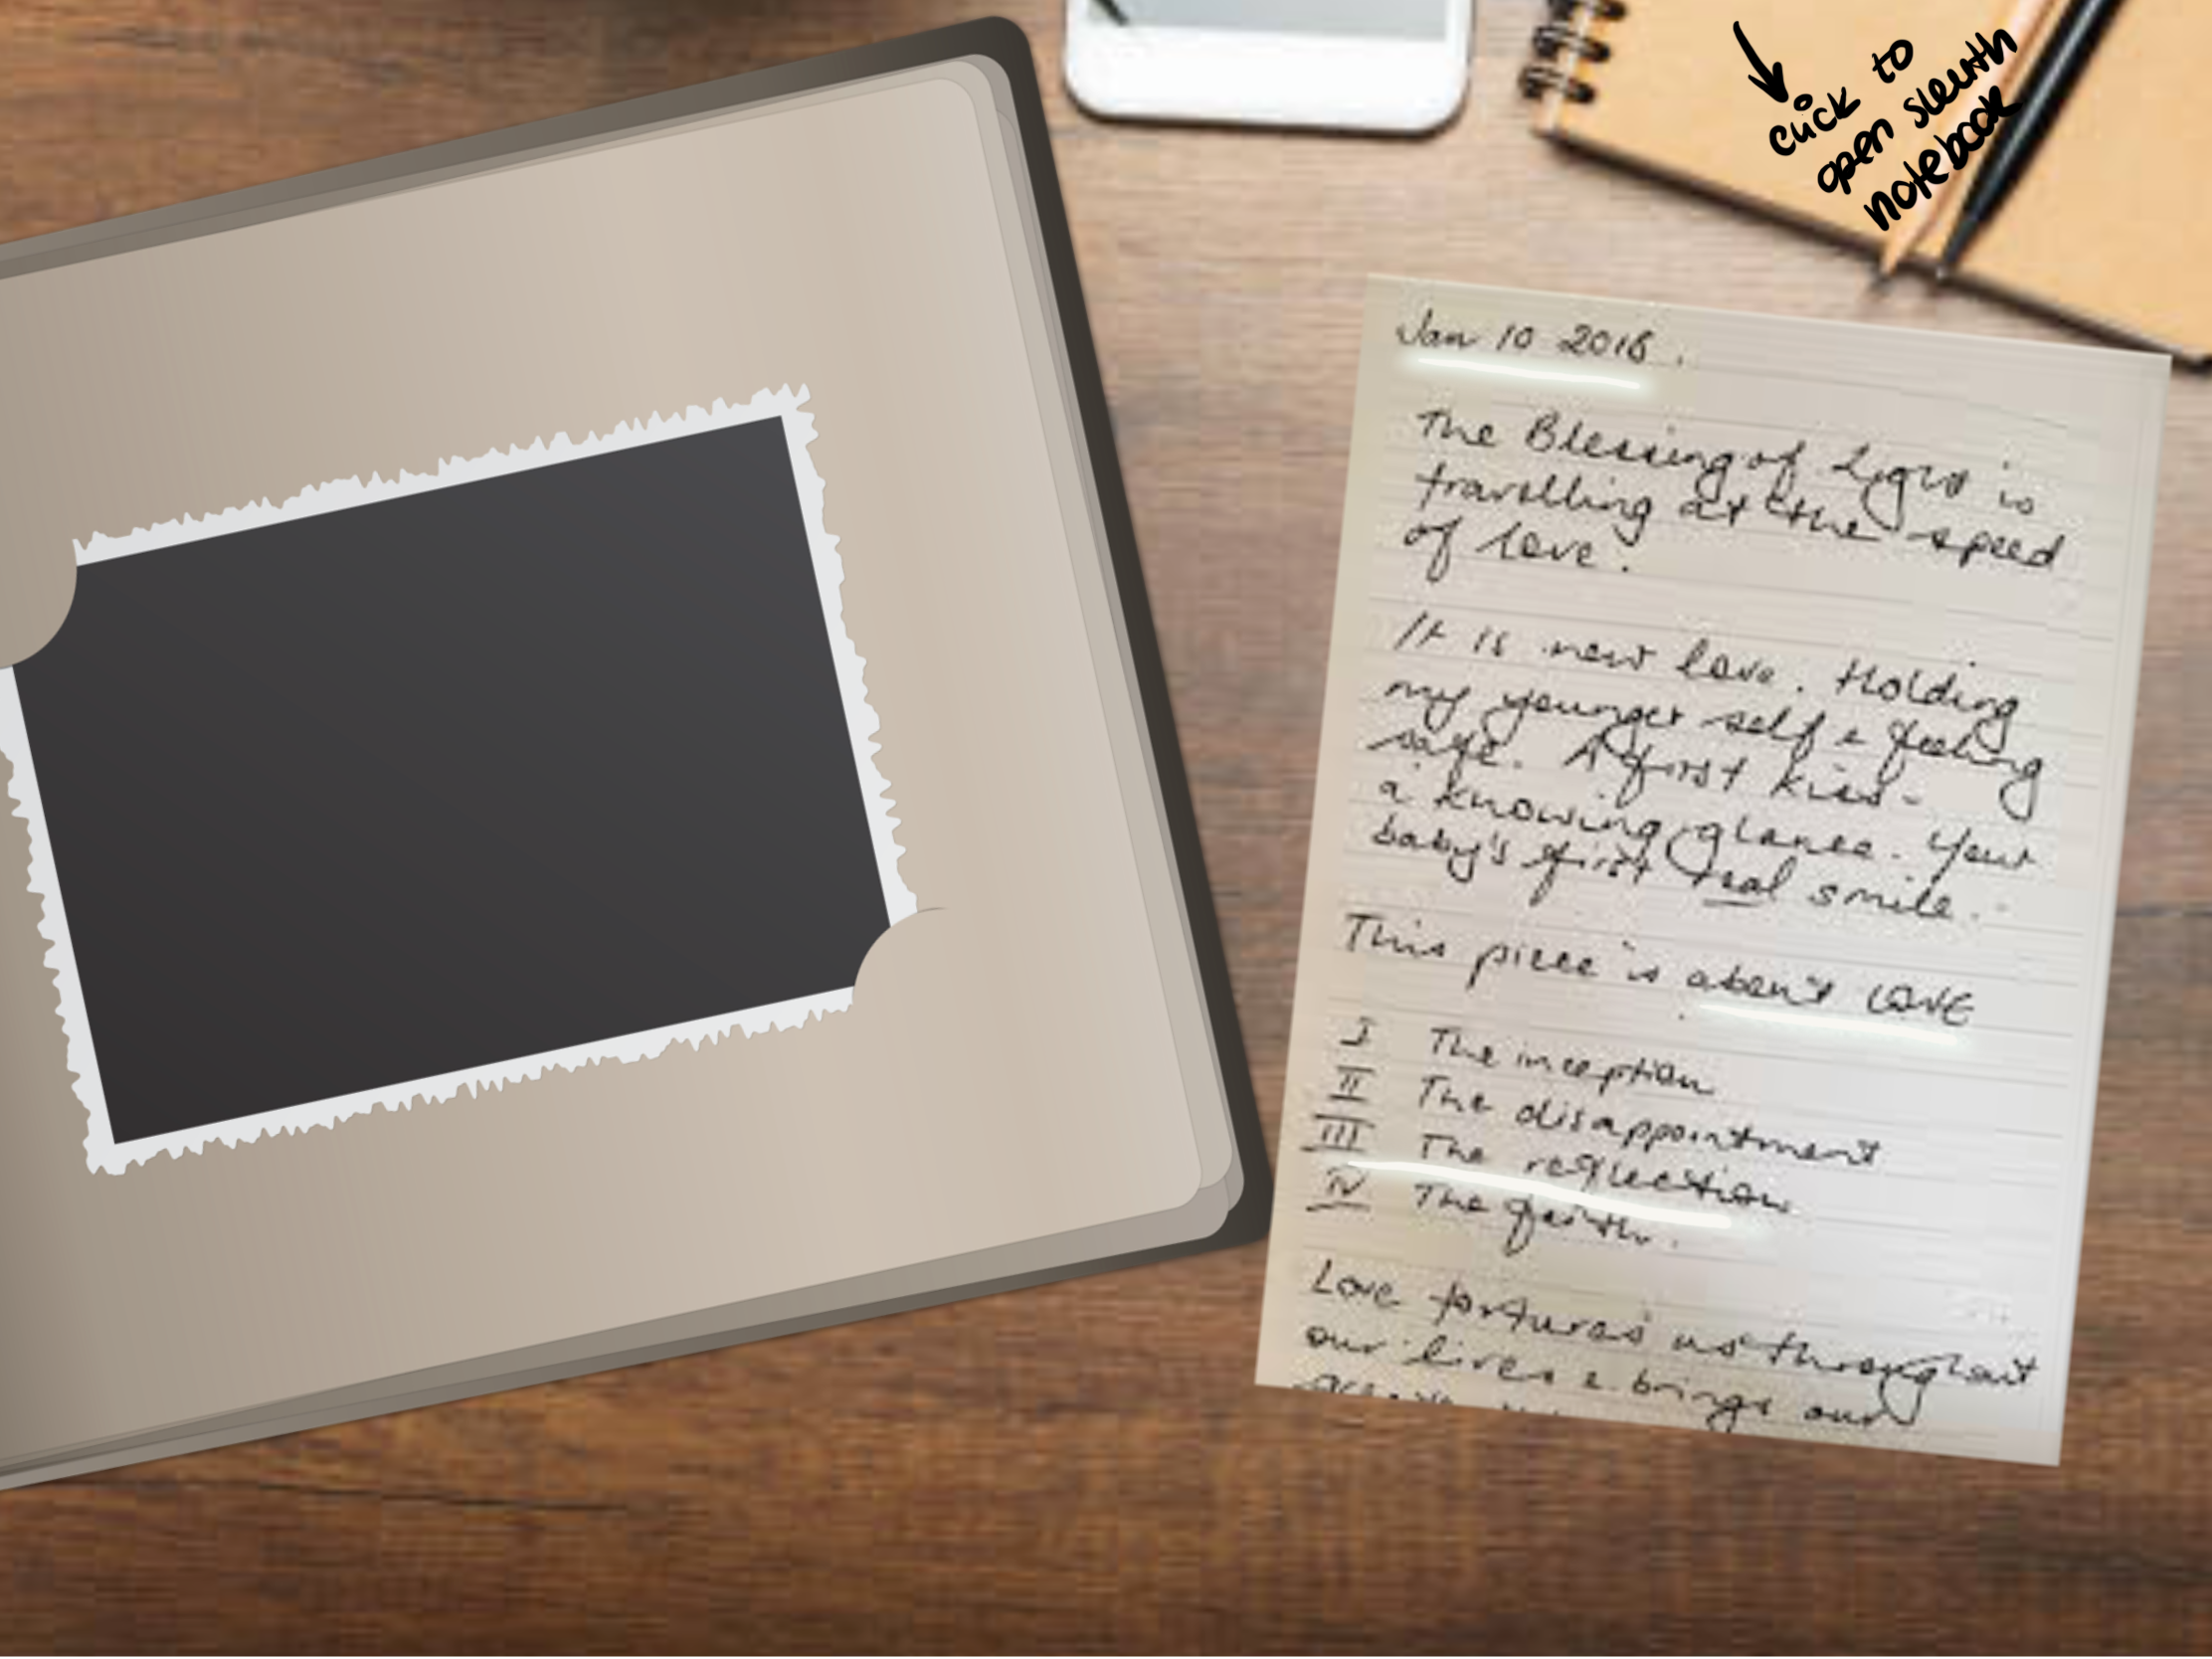 click to
open sleuth
notebook
Jan 10 2018.
The Blessing of Light is
travelling at the speed
of love.
It is new love. Holding
my younger self & feeling
safe. A first kiss -
a knowing glance. Your
baby's first real smile.
This piece is about LOVE
I The inception
II The disappointment
III The reflection
IV The faith.
Love tortures us throughout
our lives & brings our